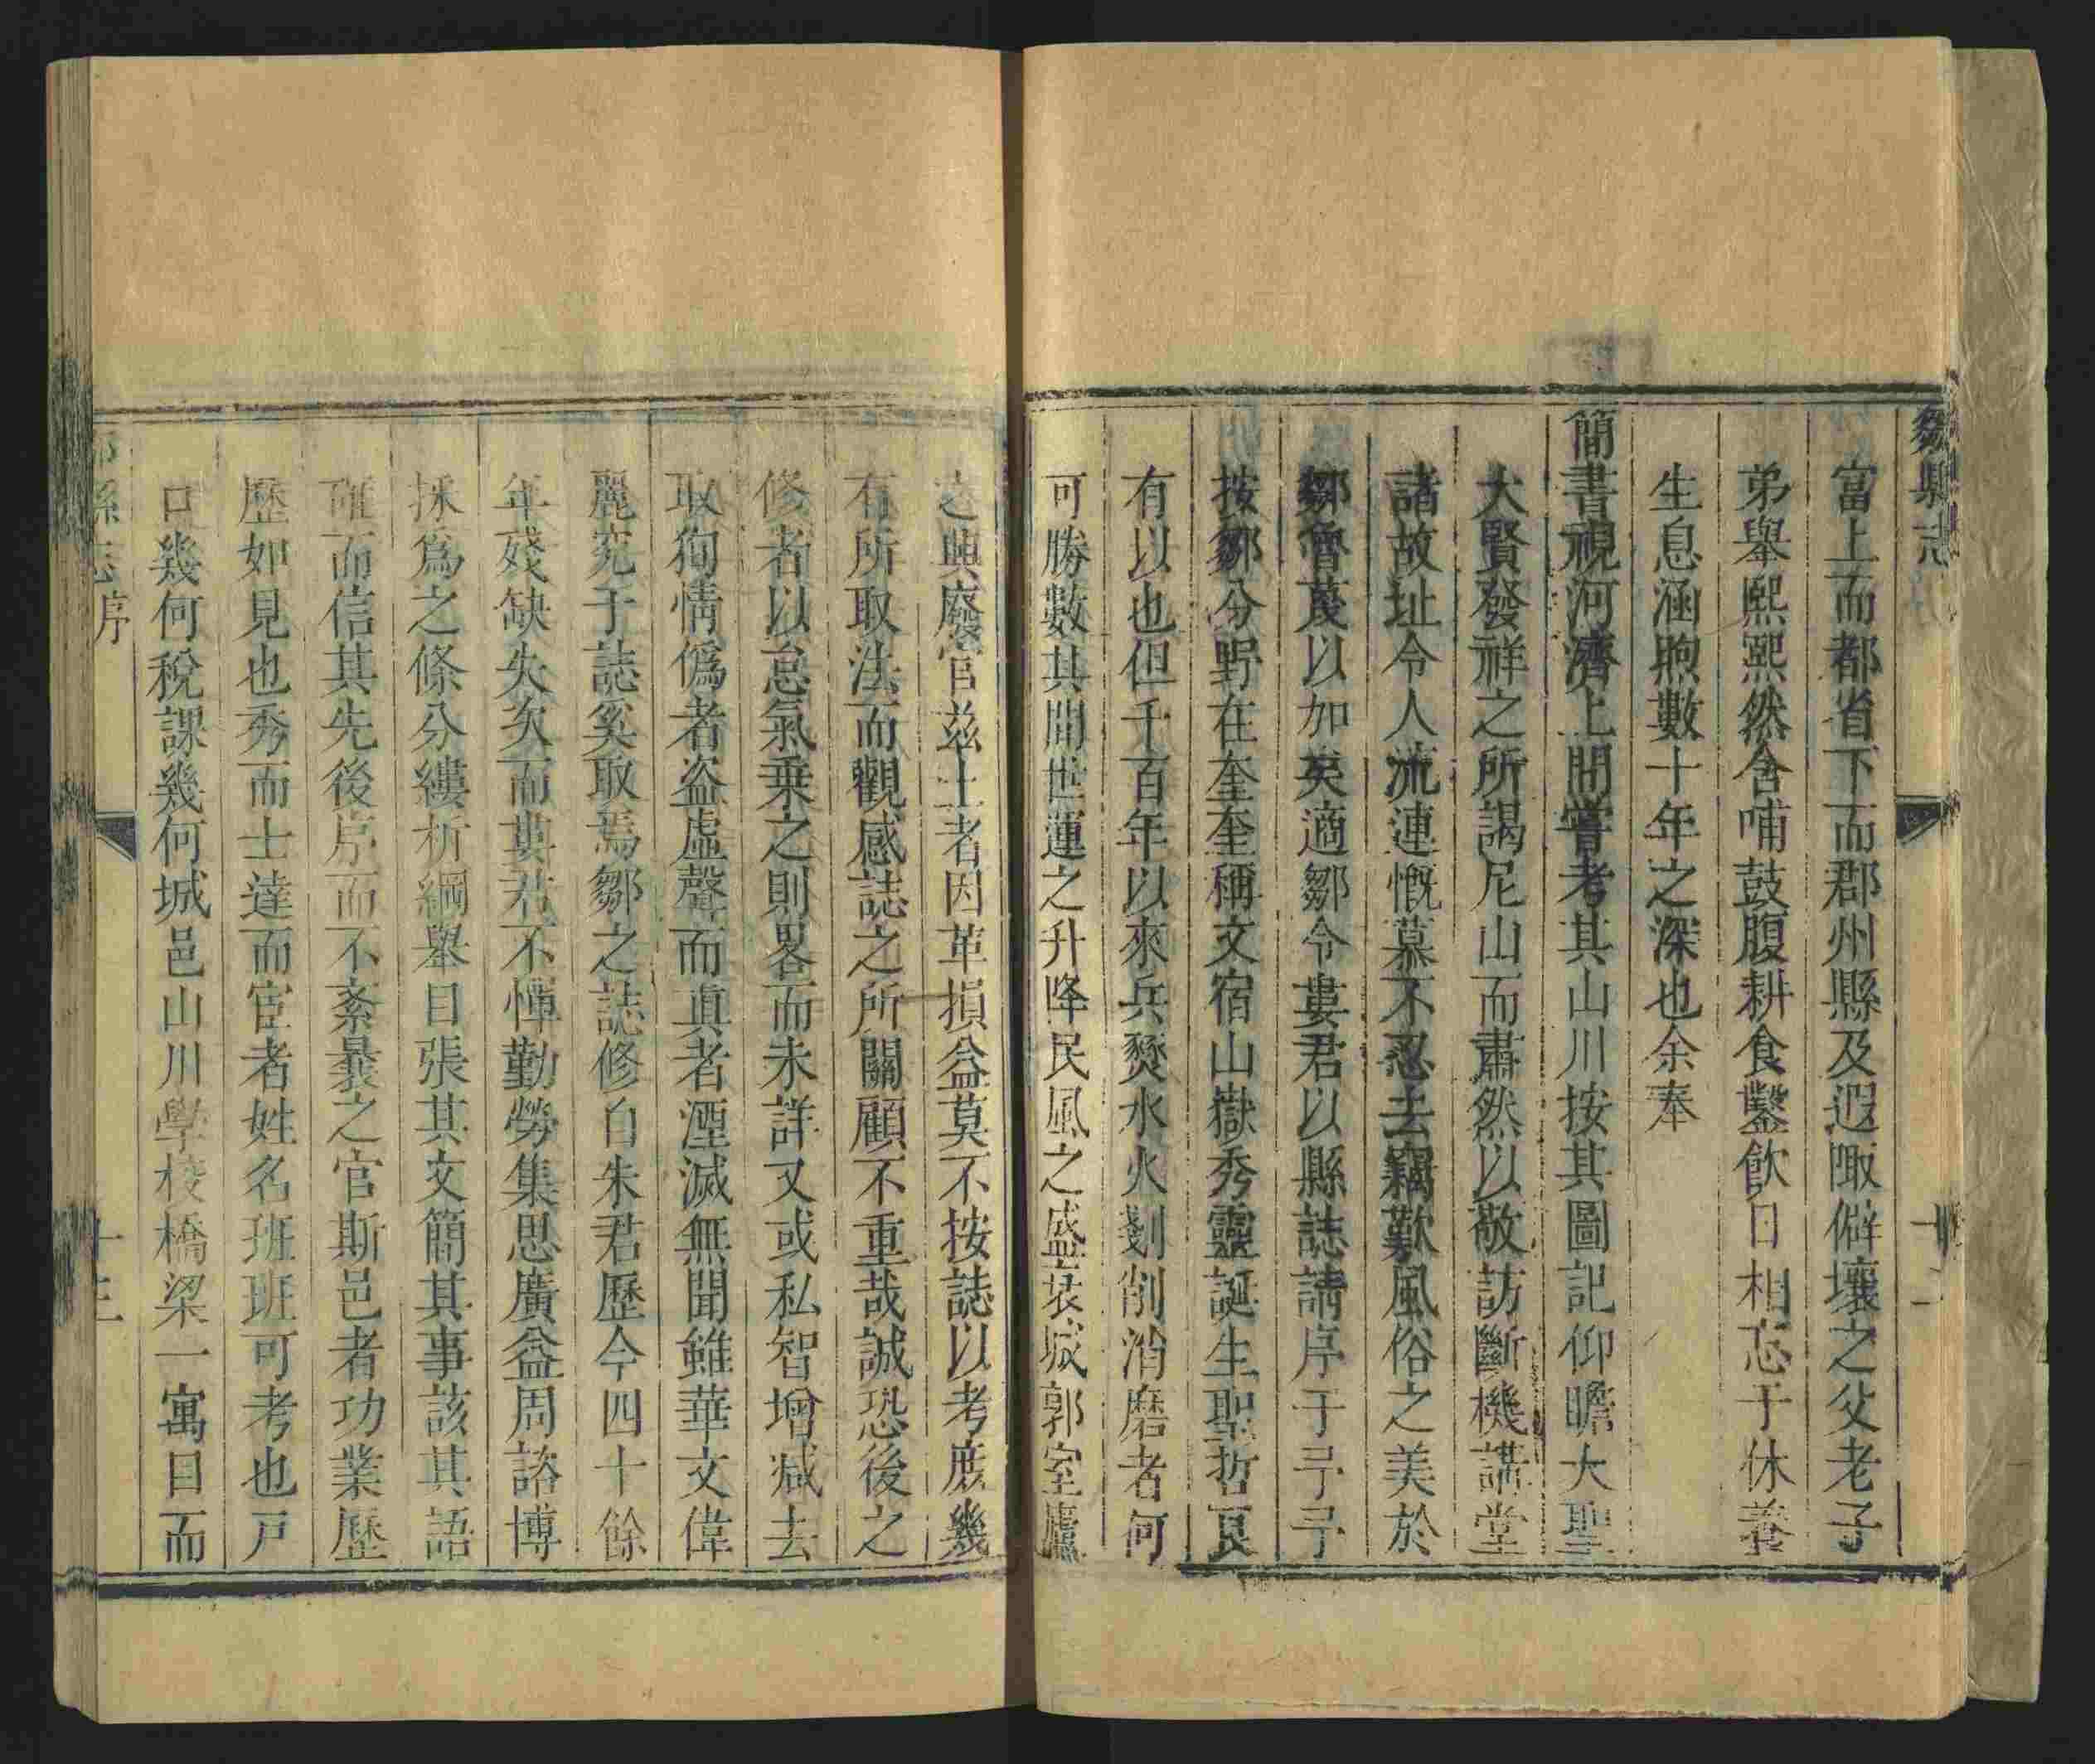 鄒縣志
十二
富上而都省下而郡州縣及遐陬僻壤之父老子
弟舉熙熙然含哺鼓腹耕食鑿飲日相忘于休養
生息涵煦數十年之深也余奉
簡書視河濟上間嘗考其山川按其圖記仰瞻大聖
大賢發祥之所謁尼山而肅然以敬訪斷機講堂
諸故址令人流連慨慕不忍去竊歎風俗之美於
鄒魯蔑以加矣適鄒令婁君以縣誌請序于予予
按鄒分野在奎奎稱文宿山嶽秀靈誕生聖哲良
有以也但千百年以來兵燹水火剗削消磨者何
可勝數其間世運之升降民風之盛衰城郭室廬
之興廢官兹土者因革損益莫不按誌以考庶幾
有所取法而觀感誌之所關顧不重哉誠恐後之
修者以怠氣乗之則畧而未詳又或私智增减去
取狥情僞者盗虛聲而真者湮滅無聞雖華文偉
麗究于誌奚取焉鄒之誌修自朱君歷今四十餘
年殘缺失次而婁君不憚勤勞集思廣益周諮博
採爲之條分縷析綱舉目張其文簡其事該其語
確而信其先後序而不紊曩之官斯邑者功業歷
歷如見也秀而士達而宦者姓名班班可考也戸
口幾何稅課幾何城邑山川學校橋梁一寓目而
縣志序
十三